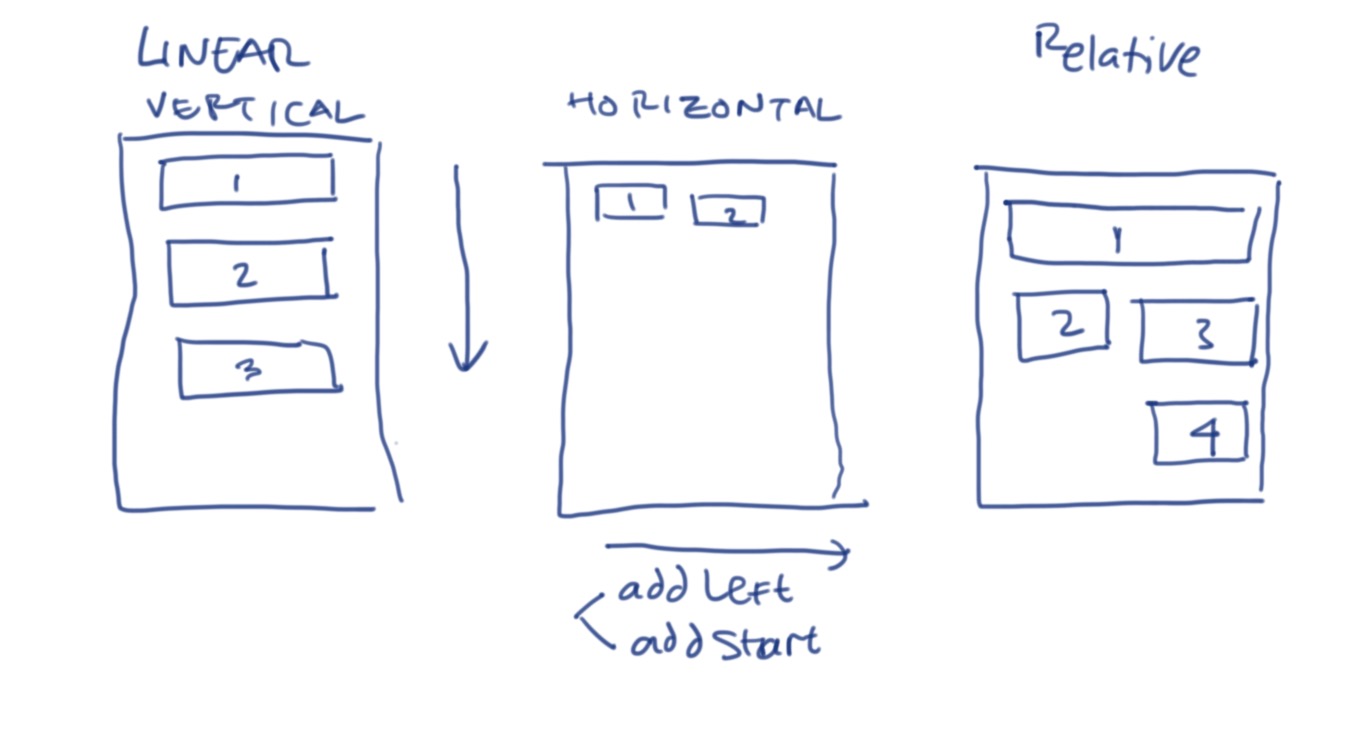 LINEAR
VERTICAL
1
2
3
HORIZONTAL
1 2
add Left
add Start
Relative
1
2 3
4